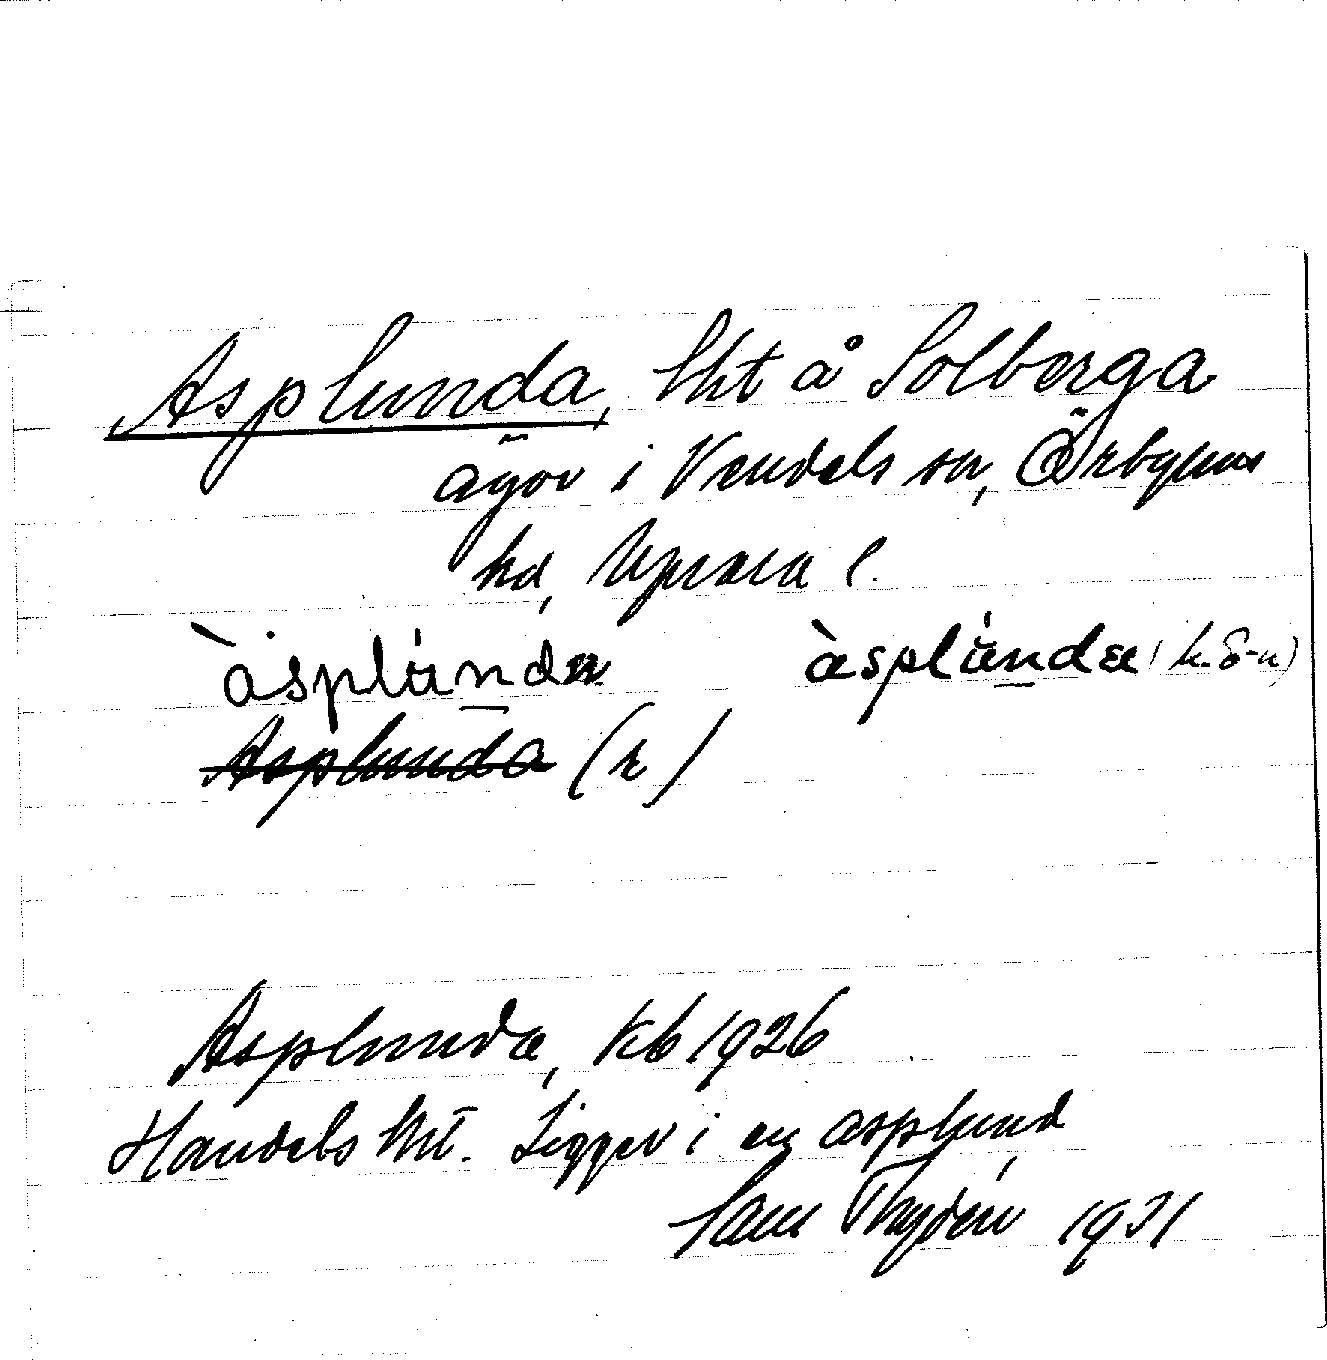 Asplunda, lht å Solberga
ägor i Vendels sn, Örbyhus
hd, Uppsala l.
àsplúnda àsplúnda
Asplunda (r)
Asplunda, Kb 1926
Handels lht. Ligger i en asplund
Sam Thydén 1931